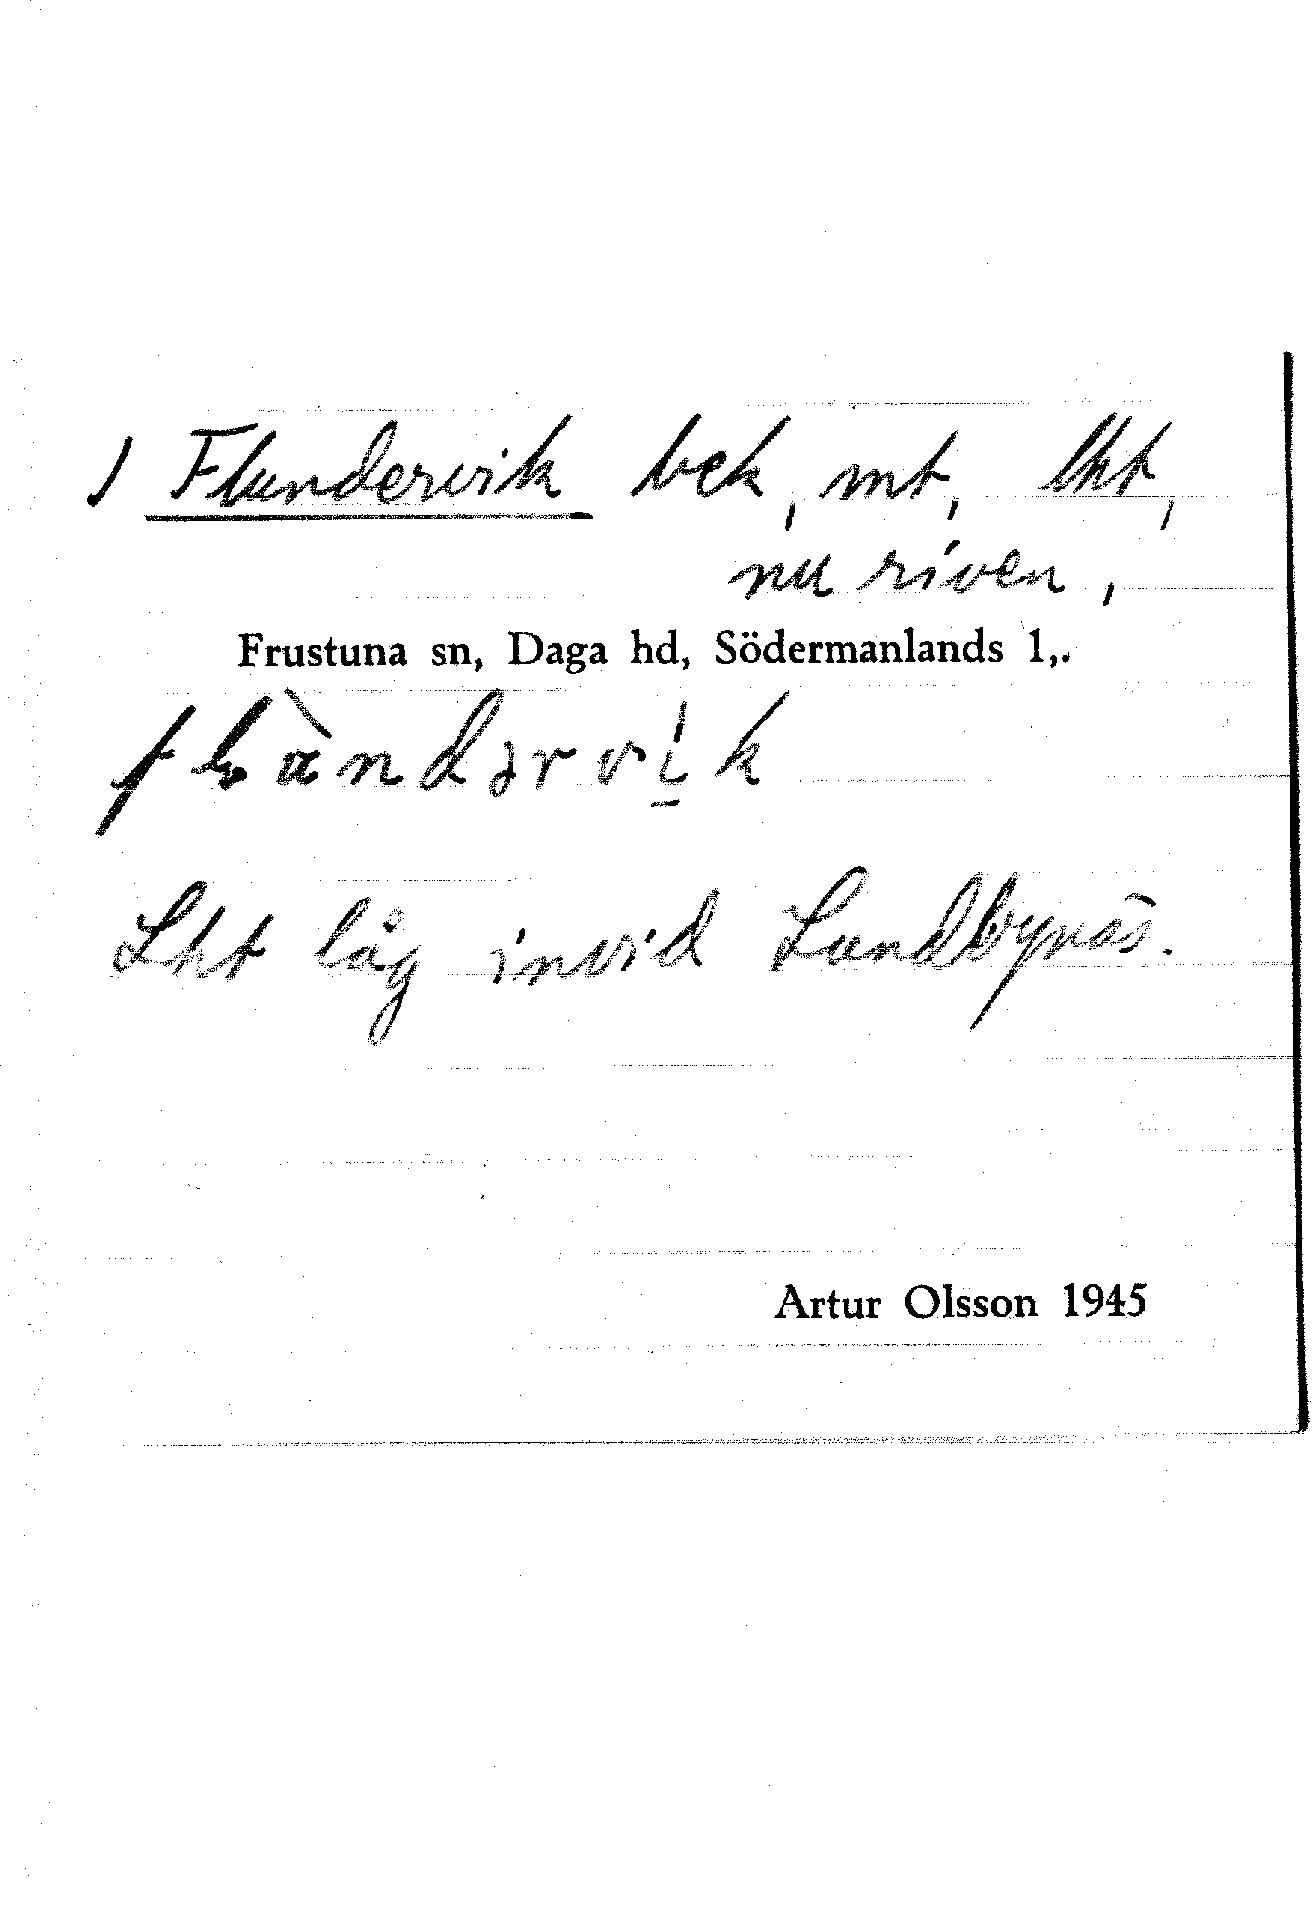 ) Flundervik bek, mt, lht,
nu riven,
Frustuna sn, Daga hd, Södermanlands l,.
Lht låg invid Lundbynäs.
Artur Olsson 1945